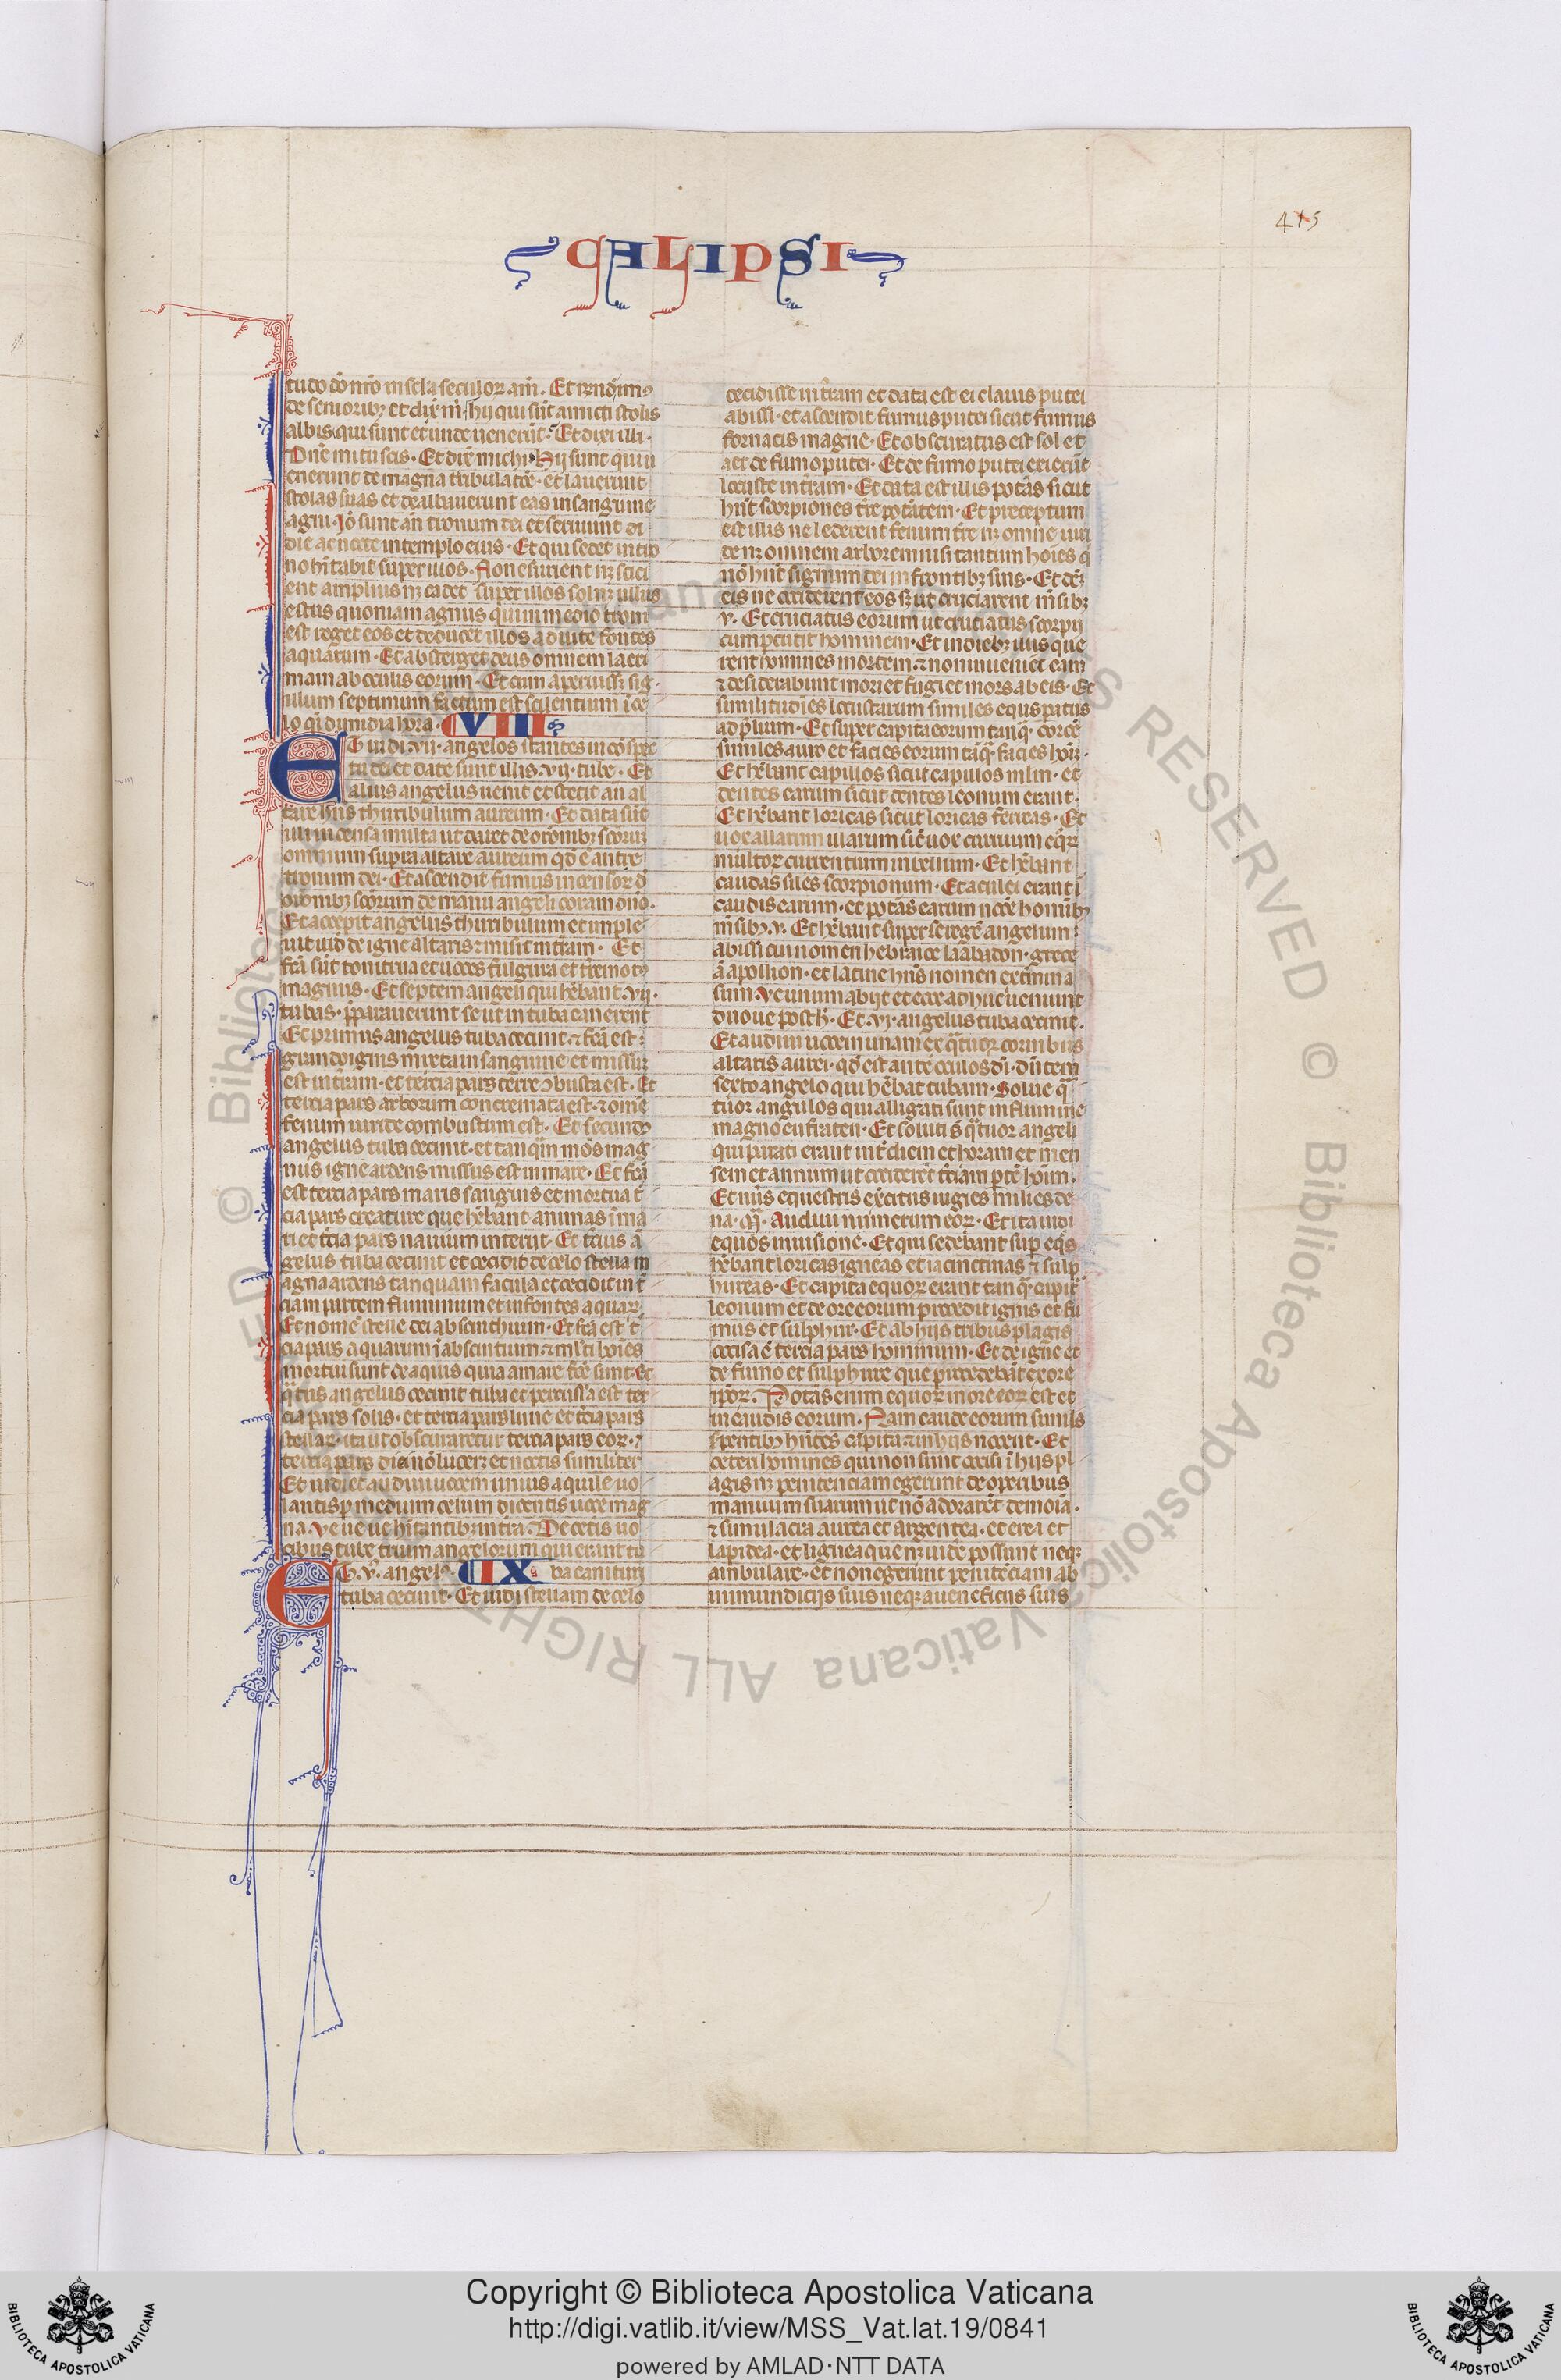 415
CALIPSI
tudo deo nro in scla seculor am. Et rn̄dit un9
de seniorib; et dix̄ m̄. hij qui sūt amicti stolis
albis qui sunt et unde uenerūt. Et dixi illi.
Dn̄e mi tu scis. Et dix̄ michi. Hij sunt qui u
enerunt de magna tribulatōe. et lauerunt
stolas suas et dealbauerunt eas in sanguine
agni. Iō sunt an̄ tronum dei et seruiunt ei
die ac nocte in templo eius. Et qui sedet in tro
no hītabit super illos. Non esurient nz siti
ent amplius nz cadet super illos sol nz ullus
estus quoniam agnus qui in medio troni
est reget eos et deducet illos ad uite fontes
aquarum. Et absterget deus omnem lacri
mam ab oculis eorum. Et cum aperuisset sig
illum septimum factum est scilentium ī ce
lo qi dimidia hora. VIII
ET uidi .vii. angelos stantes in cōspec
tu dei et date sunt illis .vii. tube. Et
alius angelus uenit et stetit an̄ al
tare hn̄s thuribulum aureum. Et data sūt
illi incensa multa ut daret de orōnib; scōrum
omnium supra altare aureum qd̄ ē ante
tronum dei. Et ascendit fumus incensor d̄
orōnib; scōrum de manu angeli coram dn̄o.
Et accepit angelus thuribulum et imple
uit illd̄ de igne altaris z misit in t̄ram. Et
fc̄a sūt tonitrua et uoces fulgura et t̄remot9
magnus. Et septem angeli qui hēbant .vii.
tubas. pparauerunt se ut in tuba canerent
Et primus angelus tuba cecinit. z fc̄a est
grando ignis mixtam sanguine et missum
est in t̄ram. et tercia pars terre cōbusta est. Et
tercia pars arborum concremata est. z omē
fenum uiride combustum est. Et secund9
angelus tuba cecinit. et tanq̄m mōs mag
nus igne ardens missus est in mare. Et fc̄a
est tercia pars maris sanguis et mortua t̄
cia pars creature que hēbant animas ī ma
ri et t̄cia pars nauium interiit. Et t̄cius ā
gelus tuba cecinit et cecidit de celo stella m
agna ardens tanquam facula et cecidit in t̄
ciam partem fluminum et in fontes aquar
Et nomē stelle dei absinthium. Et fc̄a est t̄
cia pars aquarum ī absintium. z ml̄ti hoīes
mortui sunt de aquis quia amare fc̄e sunt. Et
q̄rtus angelus cecinit tuba et percussa est ter
cia pars solis. et tercia pars lune et t̄cia pars
stellar. ita ut obscuraretur tercia pars eor. z
tercia pars diei nō lucer; et noctis similiter
Et uidi et audiui uocem unius aquile uo
lantis p medium celum dicentis uoce mag
na. Ve ue ue hītantib; in t̄ra. De cetis uo
cibus tube trium angelorum qui erant tu
ET .v. angels IX ba canituri
tuba cecinit. Et uidi stellam de celo
cecidisse in t̄ram et data est ei clauis putei
abissi. et ascendit fumus putei sicut fumus
fornacis magne. Et obscuratus est sol et
aer de fumo putei. Et de fumo putei exierūt
locuste in t̄ram. Et data est illis potās sicut
hn̄t scorpiones t̄re potātem. Et preceptum
est illis ne lederent fenum t̄re nz omne uiri
de nz omnem arborem nisi tantum hoīes q̄
nō hn̄t signum dei in frontib; suis. Et dc̄m
eis ne occiderent eos s; ut cruciarent m̄sib;
.v. Et cruciatus eorum ut cruciatus scorpii
cum pcutit hominem. Et in dieb; illis que
rent homines mortem z non inueniēt eam
z desiderabunt mori et fugiet mors ab eis. Et
similitudīes locustarum similes equis paratis
ad plium. Et super capita eorum tanq̄ corōe
similes auro et facies eorum tāq̄ facies hoīm.
Et hēbant capillos sicut capillos mlm. et
dentes earum sicut dentes leonum erant.
Et hēbant loricas sicut loricas ferreas. Et
uox allarum illarum sic̄ uox curruum eq̄r
multor currentium in bellum. Et hēbant
caudas sīles scorpionum. Et aculei erant ī
caudis earum. et potās earum nocē homīb;
m̄sib; .v. Et hēbant super se regē angelum
abissi cui nomen hebraice laabadon. grece
ā apollion. et latine hn̄s nomen extermīna
sum. Ve unum abijt et ecce adhuc ueniunt
duo ue post h̄. Et .vi. angelus tuba cecinit.
Et audiui uocem unam ex q̄tuor cornibus
altaris aurei. qd̄ est ante oculos dī. dn̄tem
sexto angelo qui hēbat tubam. Solue q̄
tuor angulos qui alligati sunt in flumine
magno eufraten. Et soluti s̄ q̄tuor angeli
qui parati erant int̄ diem et horam et men
sem et annum ut occiderēt t̄ciam ptē hoīm.
Et nūs equestris ex̄citus uigies milies de
na .M. Audiui numerum eor. Et ita uidi
equos in uisione. Et qui sedebant sup eqs
hēbant loricas igneas et iacinctinas z sulp
hureas. Et capita equor erant tanq̄ capit̄
leonum et de ore eorum procedit ignis et fu
mus et sulphur. Et ab hijs tribus plagis
occisa ē tercia pars hominum. Et de igne et
de fumo et sulphure que procedebāt ex ore
ipor. Potās enim equor in ore eor est et
in caudis eorum. Nam caude eorum similes
spentib; hn̄tes capita z in hijs nocent. Et
ceteri homines qui non sunt occisi ī hijs pl
agis nz penitenciam egerunt de operibus
manuum suarum ut nō adorarēt demoīa.
z simulacra aurea et argentea. et erea et
lapidea. et lignea que nz uidē possunt neq;
ambulare. et non egerunt penitēciam ab
inmundicijs suis neq; a ueneficijs suis